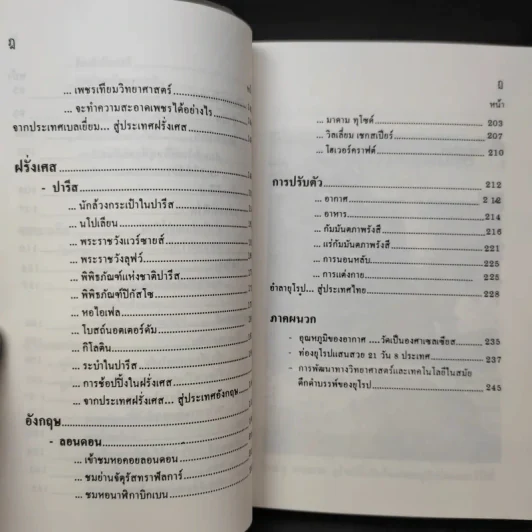 ฎ
... เพชรเทียมวิทยาศาสตร์
... จะทำความสะอาดเพชรได้อย่างไร
จากประเทศเบลเยี่ยม... สู่ประเทศฝรั่งเศส
ฝรั่งเศส
- ปารีส
... นักล้วงกระเป๋าในปารีส
... นโปเลียน
... พระราชวังแวร์ซายส์
... พระราชวังลุฟว์
... พิพิธภัณฑ์แห่งชาติปารีส
... พิพิธภัณฑ์ปิกัสโซ
... หอไอเฟล
... โบสถ์นอตเตอร์ดัม
... กิโลติน
... ระบำในปารีส
... การช้อปปิ้งในฝรั่งเศส
... จากประเทศฝรั่งเศส... สู่ประเทศอังกฤษ
อังกฤษ
- ลอนดอน
... เข้าชมหอคอยลอนดอน
... ชมย่านจัตุรัสทราฟัลการ์
... ชมหอนาฬิกาบิกเบน
หน้า
... มาดาม ทูโซด์ 203
... วิลเลี่ยม เชกสเปียร์ 207
... โฮเวอร์คราฟต์ 210
การปรับตัว 212
... อากาศ 212
... อาหาร 214
... กัมมันตภาพรังสี 216
... แร่กัมมันตภาพรังสี 221
... การนอนหลับ 225
... การแต่งกาย 225
อำลายุโรป... สู่ประเทศไทย 228
ภาคผนวก
- อุณหภูมิของอากาศ ....วัดเป็นองศาเซลเซียส 235
- ท่องยุโรปแสนสวย 21 วัน 8 ประเทศ 237
- การพัฒนาทางวิทยาศาสตร์และเทคโนโลยีในสมัย
ดึกดำบรรพ์ของยุโรป 245